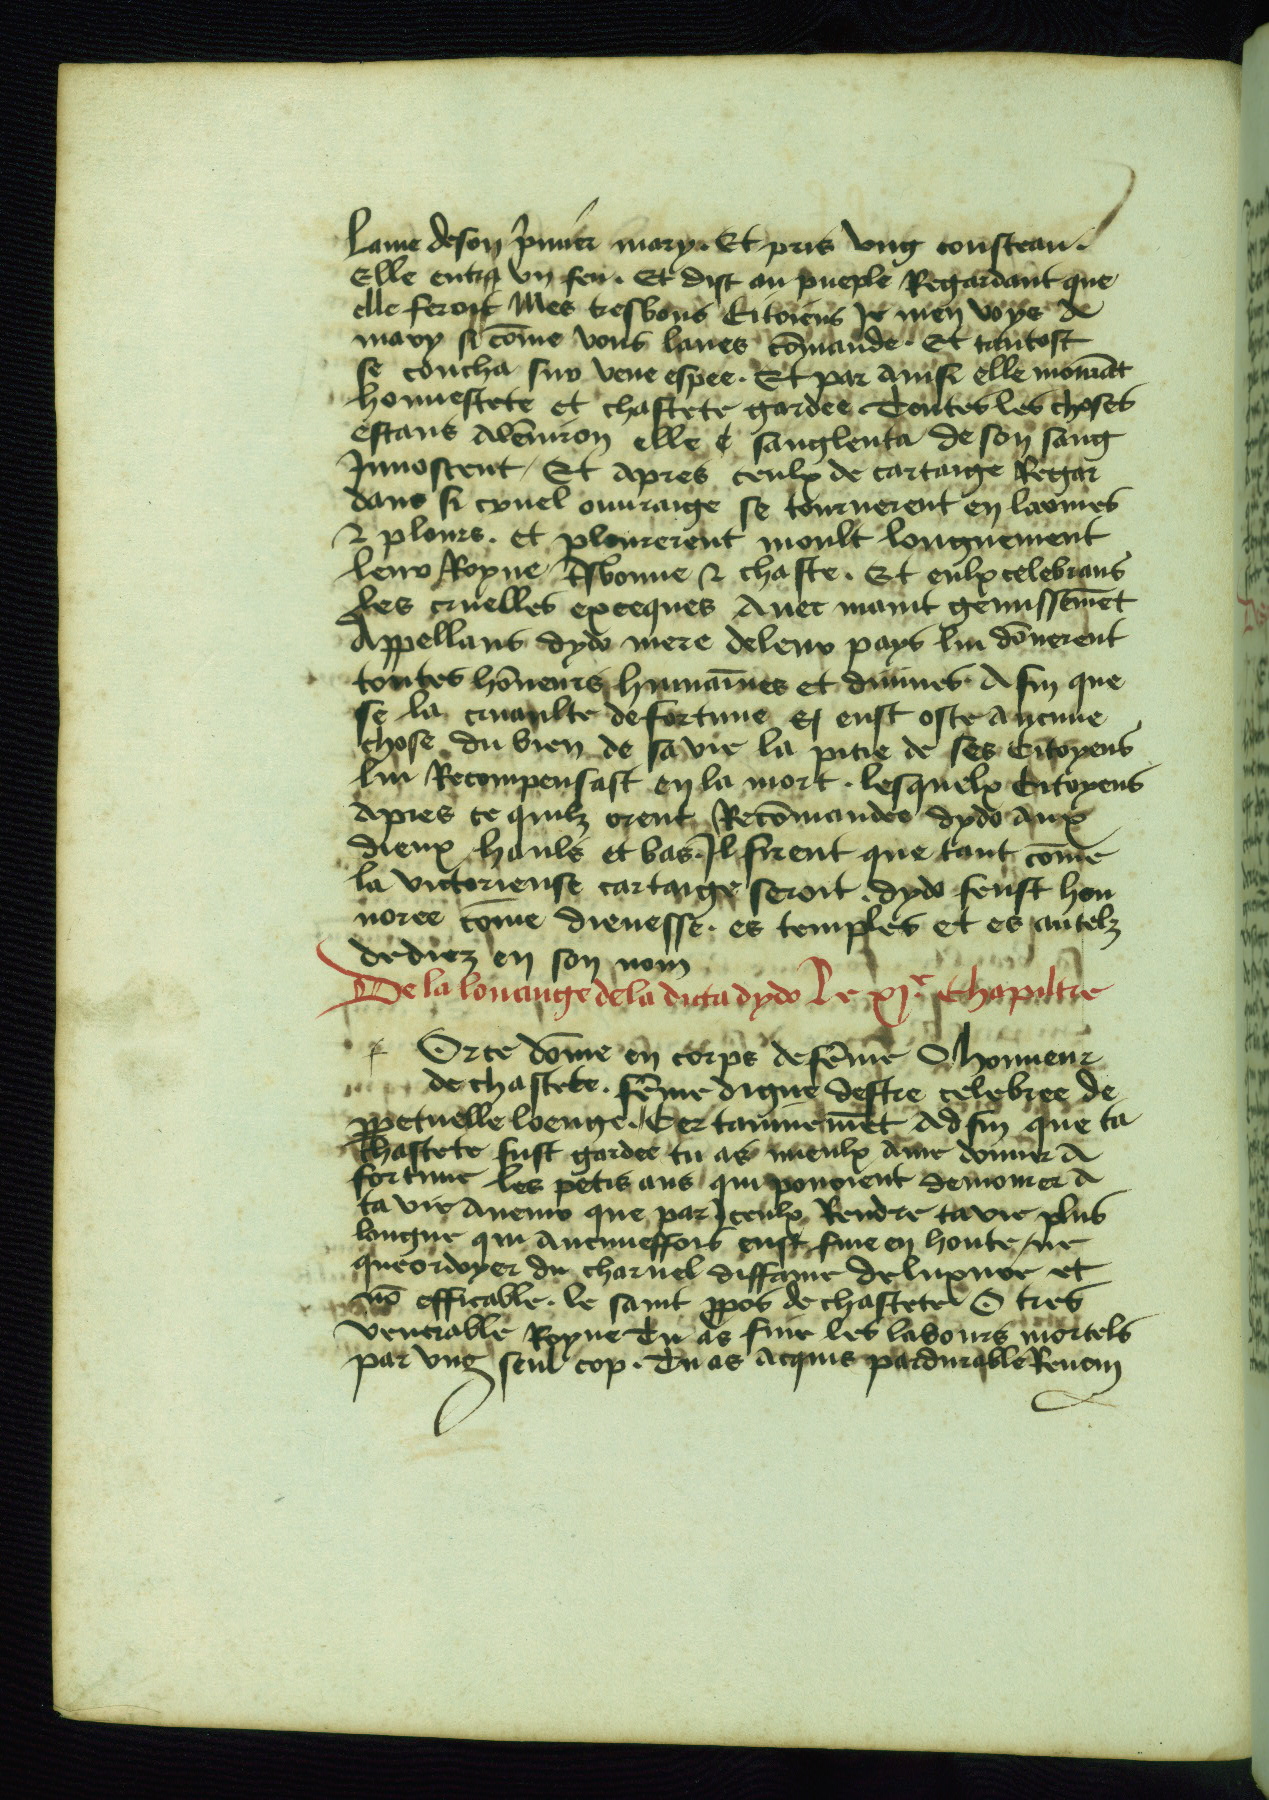 lame de son p̃imier mary. Et pris vng cousteau.
Elle entra vn feu. Et dist au pueple Regardant que
elle feroit Mes tresbons Citoiens Je men voys A
mary si cõme vous laues cõmande. Et tantost
se coucha sur vne espee. Et par ainsi elle mourãt
honnestete et chastete gardee Toutes les choses
estans alẽuiron elle e sanglenta de son sang
Innoscent / Et apres ceulx de cartaige Regar
dans si cruel ouuraige se tournerent en larmes
& plours. et plourerent moult longuement
leur Royne tsbonne & chaste. Et eulx celebrans
les cruelles exceques Auec maint gemissemẽt
Appellans dydo mere de leur pays lui dõnerent
toutes hõneurs humaĩnes et diuines. A fin que
se la cruaulte de fortune eust oste aucune
chose du bien de sa vie la pitie de ses Citoyens
lui Recompensast en la mort. lesquelx Citoyens
apres ce quilz orent Recõmandee dydo aux
dieux haulx et bas. Il firent que tant cõme
la victorieuse cartaige seroit. dydo feust hon
noree cõme dieuesse. es temples et es autelz
dediez en son nom
De la louange de la dicta dydo Le xj.e Chapiltre
Orce dõme en corps de fẽme O honneur
de chastete. fẽme digne destre celebree de
ppetuelle loenge. Certainnemẽt Ad fin que ta
chastete fust gardee tu as mieulx ame donner A
fortune les petis ans qui pouoient demourer A
ta vie Auenir que par Iceulx Rendre ta vie plus
longue qui Aucuneffois eust fine en honte / ne
que ordoyer du charnel diffame de luxure et
nõ efficable. le saint ppos de chastete O tres
venerable Royne Tu as fine les labours mortels
par vng seul cop. Tu as Acquis pardurable Renom